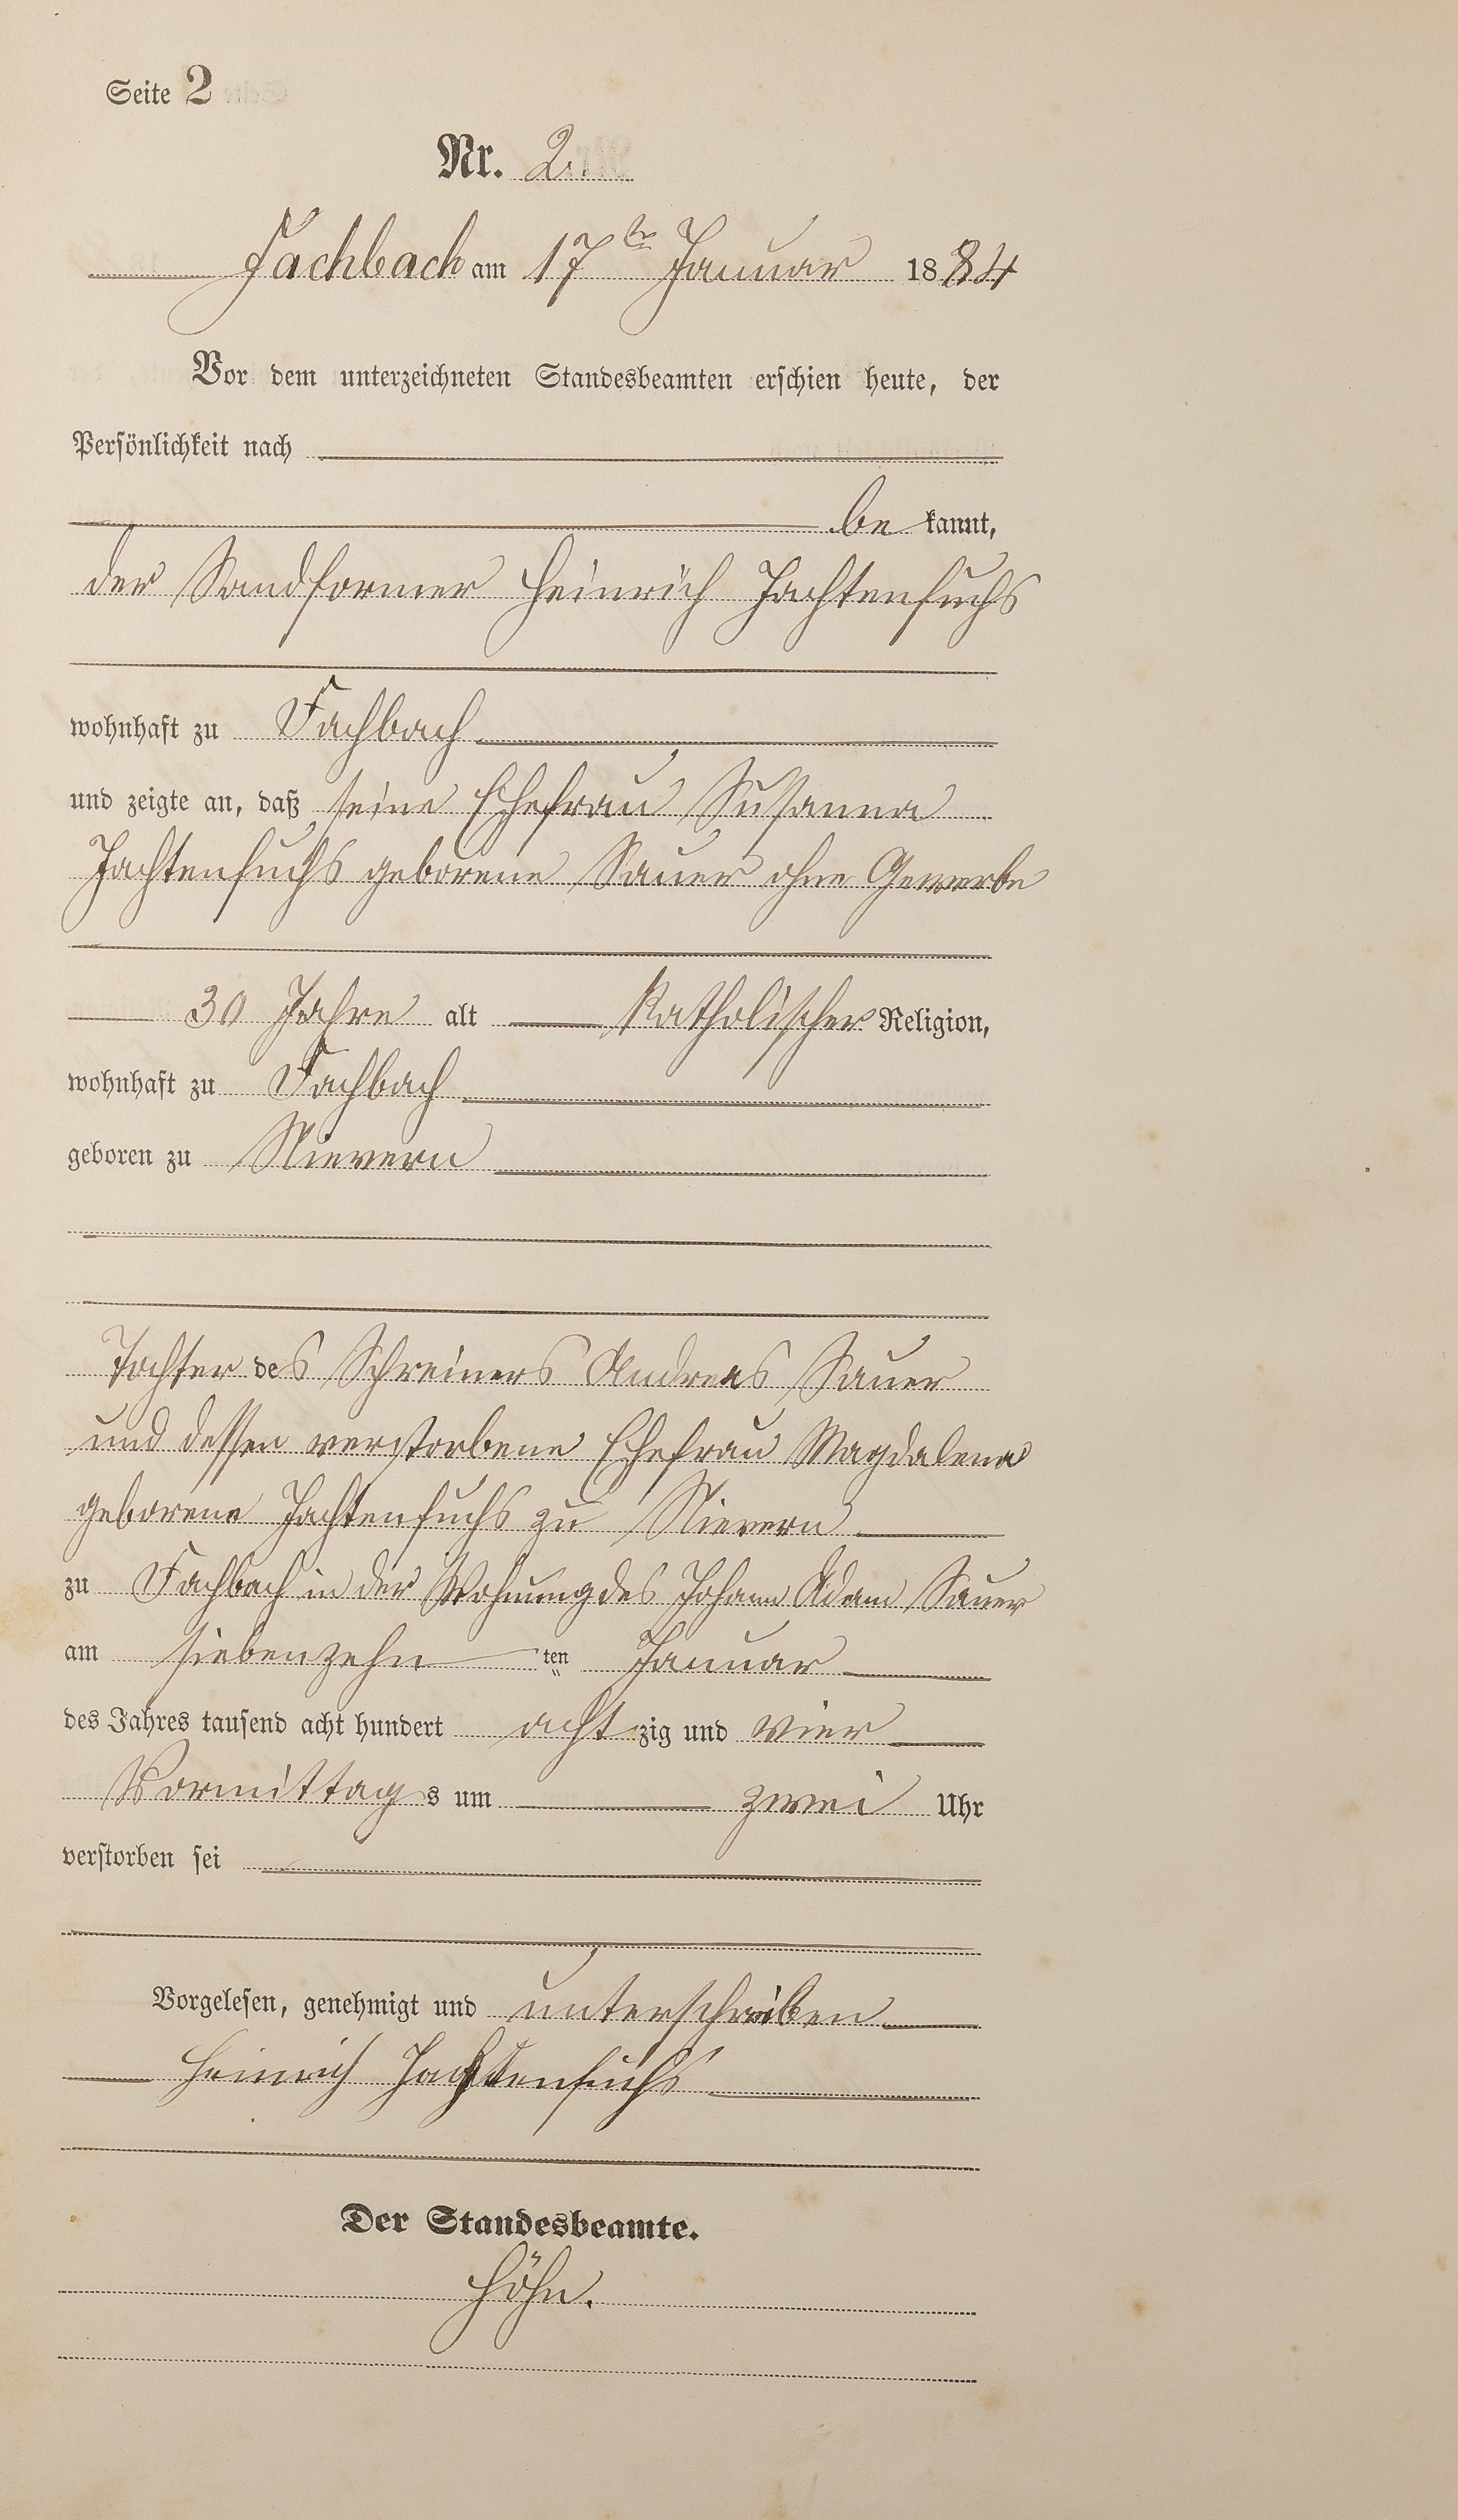 Seite 2
Nr. 2
Fachbach am 17ten Januar 1884
Vor dem unterzeichneten Standesbeamten erschien heute, der
Persönlichkeit nach
be kannt,
der Sandformer Heinrich Jachtenfuchs
wohnhaft zu Fachbach
und zeigte an, daß seine Ehefrau Susanna
Jachtenfuchs geborene Sauer ohne Gewerbe
30 Jahre alt katholischer Religion,
wohnhaft zu Fachbach
geboren zu Nievern
Tochter des Schreiners Andreas Sauer
und dessen verstorbene Ehefrau Magdalena
geborene Jachtenfuchs zu Nievern
zu Fachbach in der Wohnung des Johann Adam Sauer
am siebenzehn ten Januar
des Jahres tausend acht hundert acht zig und vier
Vormittag s um zwei Uhr
verstorben sei
Vorgelesen, genehmigt und unterschrieben
Heinrich Jachtenfuchs
Der Standesbeamte.
Höhn.